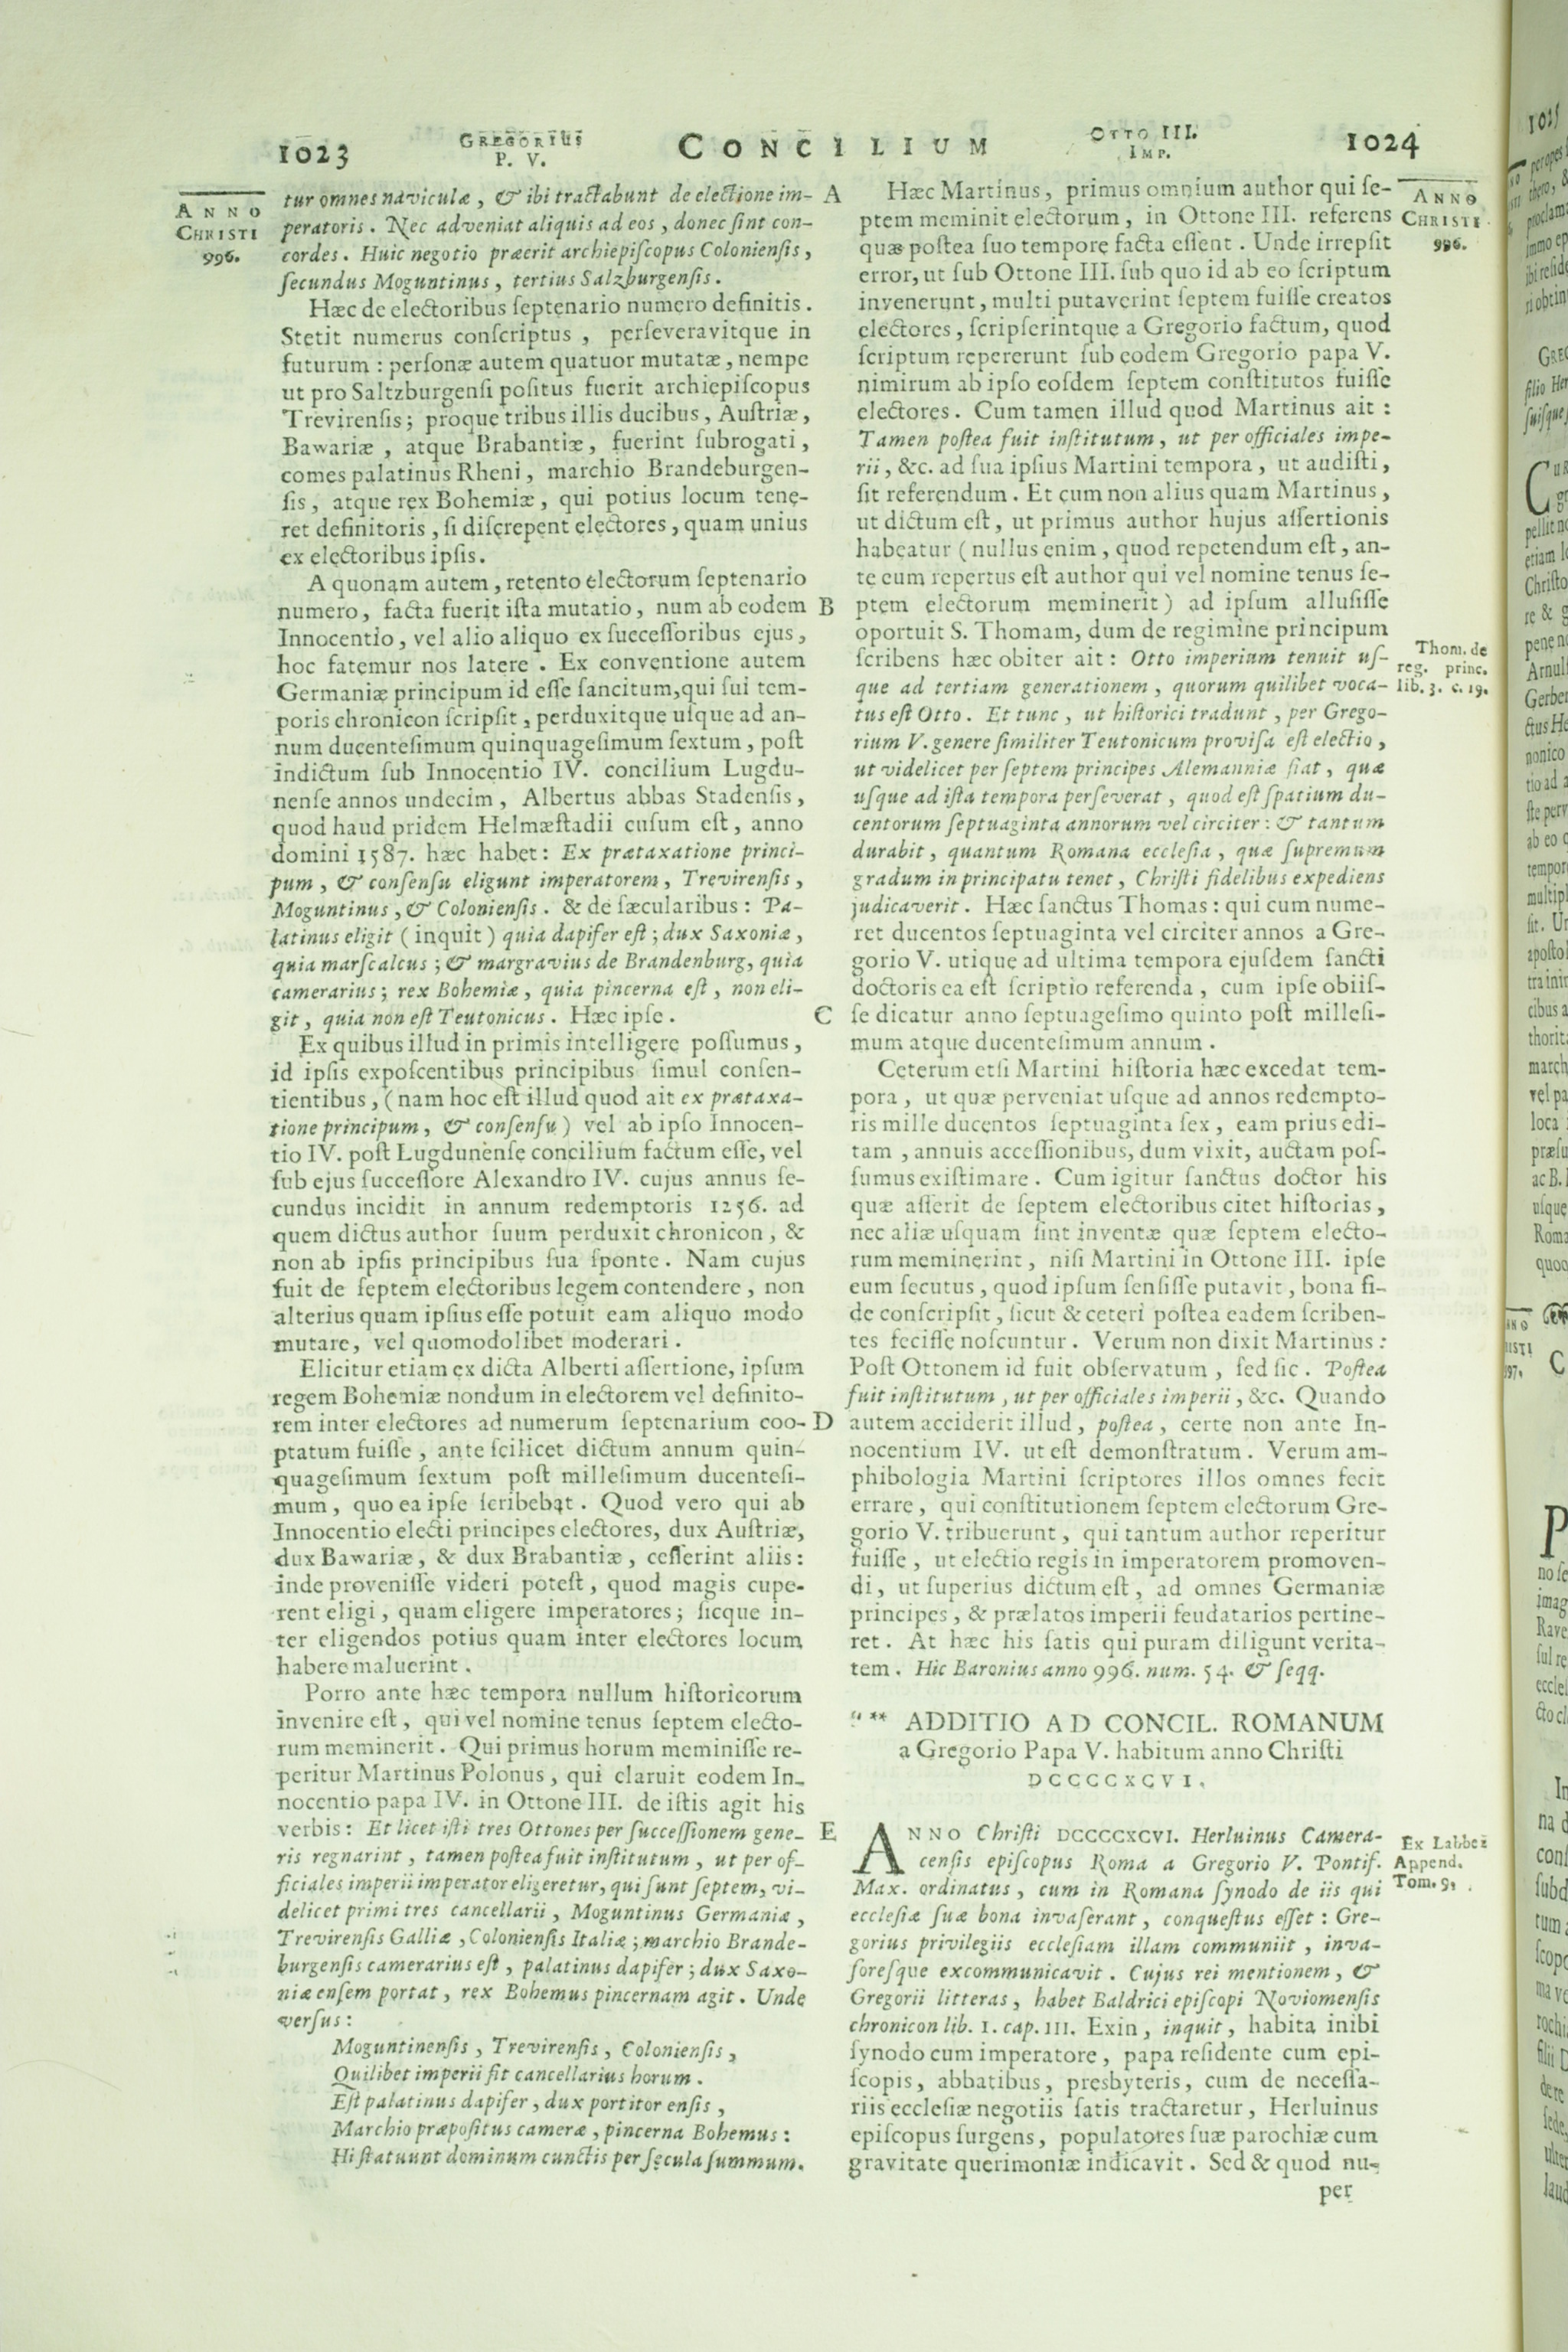 1023
GREGORIUS
P. V.
CONCILIUM
OTTO III.
IMP.
1024
ANNO
CHRISTI
996.
tur omnes naviculæ, & ibi tractabunt de electione im-
peratoris. Nec adveniat aliquis ad eos, donec ſint con-
cordes. Huic negotio præerit archiepiſcopus Colonienſis,
ſecundus Moguntinus, tertius Salzburgenſis.
Hæc de electoribus ſeptenario numero definitis.
Stetit numerus conſcriptus, perſeveravitque in
futurum: perſonæ autem quatuor mutatæ, nempe
ut pro Saltzburgenſi poſitus fuerit archiepiſcopus
Trevirenſis; proque tribus illis ducibus, Auſtriæ,
Bawariæ, atque Brabantiæ, fuerint ſubrogati,
comes palatinus Rheni, marchio Brandeburgen-
ſis, atque rex Bohemiæ, qui potius locum tene-
ret definitoris, ſi diſcrepent electores, quam unius
ex electoribus ipſis.
A quonam autem, retento electorum ſeptenario
numero, facta fuerit iſta mutatio, num ab eodem
Innocentio, vel alio aliquo ex ſucceſſoribus ejus,
hoc fatemur nos latere. Ex conventione autem
Germaniæ principum id eſſe ſancitum, qui ſui tem-
poris chronicon ſcripſit, perduxitque uſque ad an-
num ducenteſimum quinquageſimum ſextum, poſt
indictum ſub Innocentio IV. concilium Lugdu-
nenſe annos undecim, Albertus abbas Stadenſis,
quod haud pridem Helmæſtadii cuſum eſt, anno
domini 1587. hæc habet: Ex prætaxatione princi-
pum, & conſenſu eligunt imperatorem, Trevirenſis,
Moguntinus, & Colonienſis. & de ſæcularibus: Pa-
latinus eligit (inquit) quia dapifer eſt; dux Saxoniæ,
quia marſcalcus; & margravius de Brandenburg, quia
camerarius; rex Bohemiæ, quia pincerna eſt, non eli-
git, quia non eſt Teutonicus. Hæc ipſe.
Ex quibus illud in primis intelligere poſſumus,
id ipſis expoſcentibus principibus ſimul conſen-
tientibus, (nam hoc eſt illud quod ait ex prætaxa-
tione principum, & conſenſu) vel ab ipſo Innocen-
tio IV. poſt Lugdunenſe concilium factum eſſe, vel
ſub ejus ſucceſſore Alexandro IV. cujus annus ſe-
cundus incidit in annum redemptoris 1256. ad
quem dictus author ſuum perduxit chronicon, &
non ab ipſis principibus ſua ſponte. Nam cujus
fuit de ſeptem electoribus legem contendere, non
alterius quam ipſius eſſe potuit eam aliquo modo
mutare, vel quomodolibet moderari.
Elicitur etiam ex dicta Alberti aſſertione, ipſum
regem Bohemiæ nondum in electorem vel definito-
rem inter electores ad numerum ſeptenarium coo-
ptatum fuiſſe, ante ſcilicet dictum annum quin-
quageſimum ſextum poſt milleſimum ducenteſi-
mum, quo ea ipſe ſcribebat. Quod vero qui ab
Innocentio electi principes electores, dux Auſtriæ,
dux Bawariæ, & dux Brabantiæ, ceſſerint aliis:
inde proveniſſe videri poteſt, quod magis cupe-
rent eligi, quam eligere imperatores; ſicque in-
ter eligendos potius quam inter electores locum
habere maluerint.
Porro ante hæc tempora nullum hiſtoricorum
invenire eſt, qui vel nomine tenus ſeptem electo-
rum meminerit. Qui primus horum meminiſſe re-
peritur Martinus Polonus, qui claruit eodem In-
nocentio papa IV. in Ottone III. de iſtis agit his
verbis: Et licet iſti tres Ottones per ſucceſſionem gene-
ris regnarint, tamen poſtea fuit inſtitutum, ut per of-
ficiales imperii imperator eligeretur, qui ſunt ſeptem, vi-
delicet primi tres cancellarii, Moguntinus Germaniæ,
Trevirenſis Galliæ, Colonienſis Italiæ; marchio Brande-
burgenſis camerarius eſt, palatinus dapifer; dux Saxo-
niæ enſem portat, rex Bohemus pincernam agit. Unde
verſus:
Moguntinenſis, Trevirenſis, Colonienſis,
Quilibet imperii fit cancellarius horum.
Eſt palatinus dapifer, dux portitor enſis,
Marchio præpoſitus cameræ, pincerna Bohemus:
Hi ſtatuunt dominum cunctis per ſecula ſummum.
A
B
C
D
E
Hæc Martinus, primus omnium author qui ſe-
ptem meminit electorum, in Ottone III. referens
quæ poſtea ſuo tempore facta eſſent. Unde irrepſit
error, ut ſub Ottone III. ſub quo id ab eo ſcriptum
invenerunt, multi putaverint ſeptem fuiſſe creatos
electores, ſcripſerintque a Gregorio factum, quod
ſcriptum repererunt ſub eodem Gregorio papa V.
nimirum ab ipſo eoſdem ſeptem conſtitutos fuiſſe
electores. Cum tamen illud quod Martinus ait:
Tamen poſtea fuit inſtitutum, ut per officiales impe-
rii, &c. ad ſua ipſius Martini tempora, ut audiſti,
ſit referendum. Et cum non alius quam Martinus,
ut dictum eſt, ut primus author hujus aſſertionis
habeatur (nullus enim, quod repetendum eſt, an-
te eum repertus eſt author qui vel nomine tenus ſe-
ptem electorum meminerit) ad ipſum alluſiſſe
oportuit S. Thomam, dum de regimine principum
ſcribens hæc obiter ait: Otto imperium tenuit uſ-
que ad tertiam generationem, quorum quilibet voca-
tus eſt Otto. Et tunc, ut hiſtorici tradunt, per Grego-
rium V. genere ſimiliter Teutonicum proviſa eſt electio,
ut videlicet per ſeptem principes Alemanniæ fiat, quæ
uſque ad iſta tempora perſeverat, quod eſt ſpatium du-
centorum ſeptuaginta annorum vel circiter: & tantum
durabit, quantum Romana eccleſia, quæ ſupremum
gradum in principatu tenet, Chriſti fidelibus expediens
judicaverit. Hæc ſanctus Thomas: qui cum nume-
ret ducentos ſeptuaginta vel circiter annos a Gre-
gorio V. utique ad ultima tempora ejuſdem ſancti
doctoris ea eſt ſcriptio referenda, cum ipſe obiiſ-
ſe dicatur anno ſeptuageſimo quinto poſt milleſi-
mum atque ducenteſimum annum.
Ceterum etſi Martini hiſtoria hæc excedat tem-
pora, ut quæ perveniat uſque ad annos redempto-
ris mille ducentos ſeptuaginta ſex, eam prius edi-
tam, annuis acceſſionibus, dum vixit, auctam poſ-
ſumus exiſtimare. Cum igitur ſanctus doctor his
quæ aſſerit de ſeptem electoribus citet hiſtorias,
nec aliæ uſquam ſint inventæ quæ ſeptem electo-
rum meminerint, niſi Martini in Ottone III. ipſe
eum ſecutus, quod ipſum ſenſiſſe putavit, bona fi-
de conſcripſit, ſicut & ceteri poſtea eadem ſcriben-
tes feciſſe noſcuntur. Verum non dixit Martinus:
Poſt Ottonem id fuit obſervatum, ſed ſic. Poſtea
fuit inſtitutum, ut per officiales imperii, &c. Quando
autem acciderit illud, poſtea, certe non ante In-
nocentium IV. ut eſt demonſtratum. Verum am-
phibologia Martini ſcriptores illos omnes fecit
errare, qui conſtitutionem ſeptem electorum Gre-
gorio V. tribuerunt, qui tantum author reperitur
fuiſſe, ut electio regis in imperatorem promoven-
di, ut ſuperius dictum eſt, ad omnes Germaniæ
principes, & prælatos imperii feudatarios pertine-
ret. At hæc his ſatis qui puram diligunt verita-
tem. Hic Baronius anno 996. num. 54. & ſeqq.
** ADDITIO AD CONCIL. ROMANUM
a Gregorio Papa V. habitum anno Chriſti
DCCCCXCVI.
ANNO Chriſti DCCCCXCVI. Herluinus Camera-
cenſis epiſcopus Roma a Gregorio V. Pontif.
Max. ordinatus, cum in Romana ſynodo de iis qui
eccleſiæ ſuæ bona invaſerant, conqueſtus eſſet: Gre-
gorius privilegiis eccleſiam illam communiit, inva-
ſoreſque excommunicavit. Cujus rei mentionem, &
Gregorii litteras, habet Baldrici epiſcopi Noviomenſis
chronicon lib. I. cap. III. Exin, inquit, habita inibi
ſynodo cum imperatore, papa reſidente cum epi-
ſcopis, abbatibus, presbyteris, cum de neceſſa-
riis eccleſiæ negotiis ſatis tractaretur, Herluinus
epiſcopus ſurgens, populatores ſuæ parochiæ cum
gravitate querimoniæ indicavit. Sed & quod nu-
per
ANNO
CHRISTI
996.
Thom. de
reg. princ.
lib. 3. c. 19.
Ex Labbei
Append.
Tom. 9.